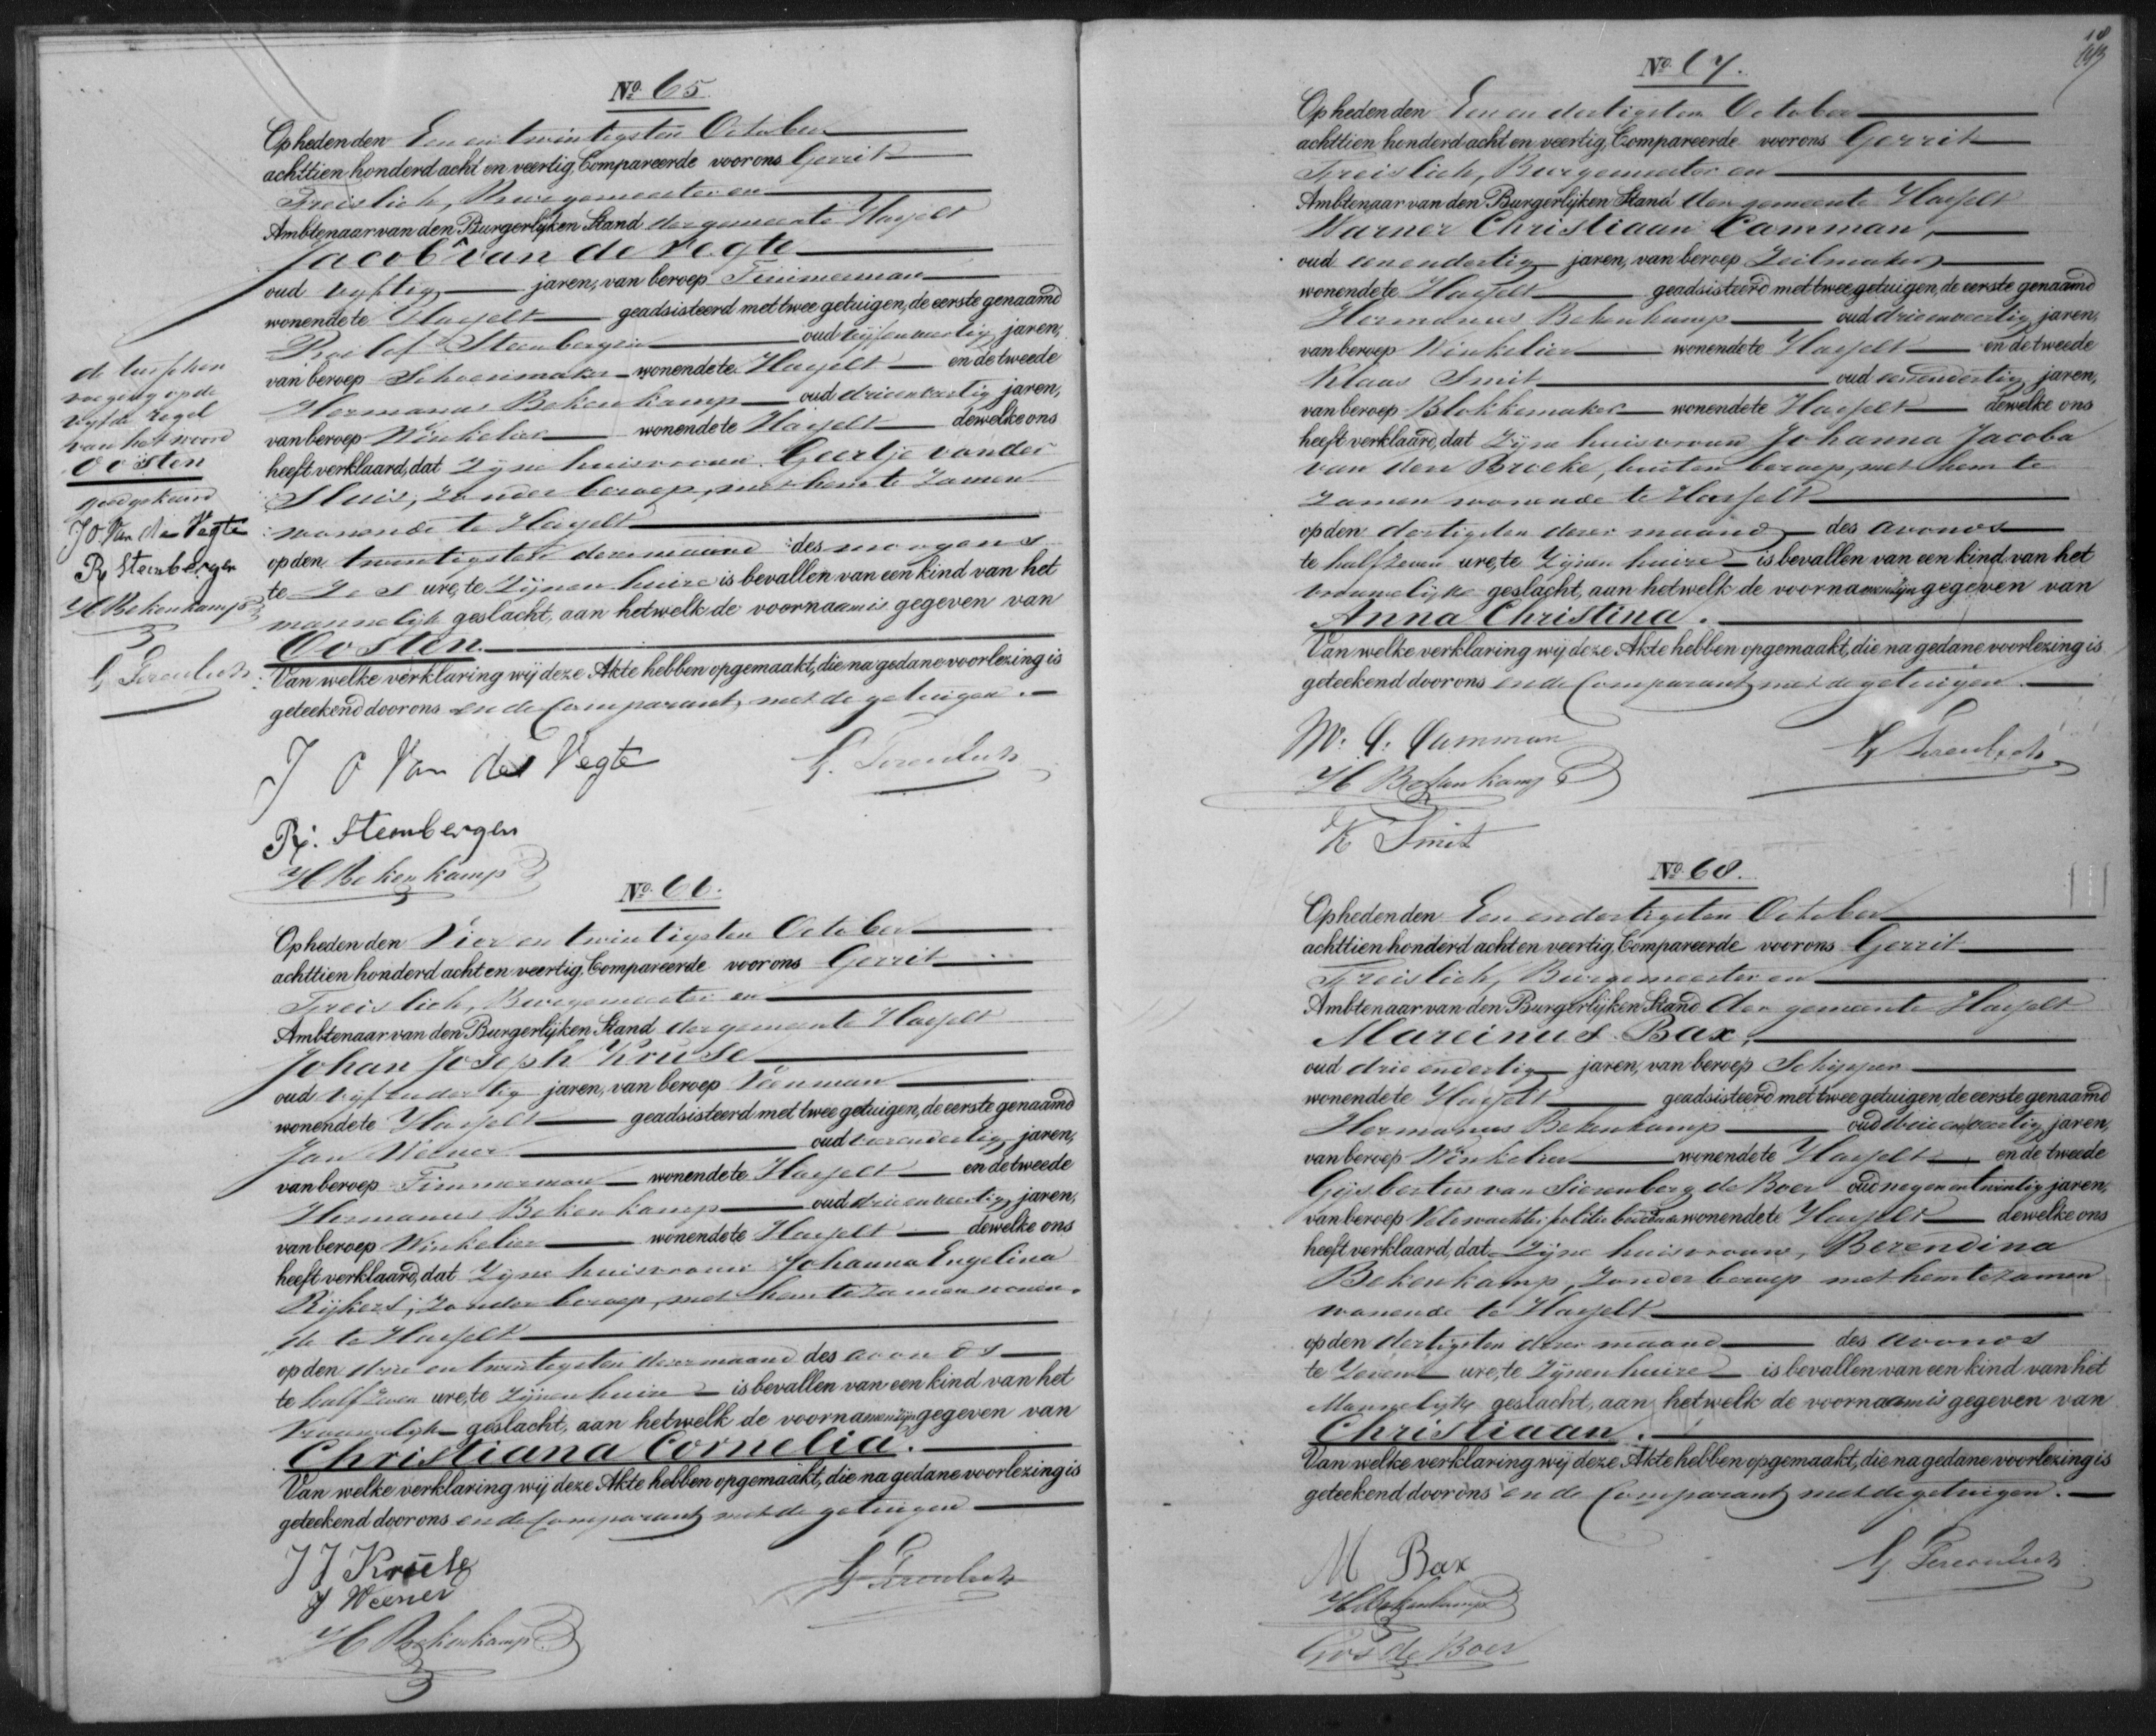 Nº 65
Op heden den Een en twintigsten October
achttien honderd acht en veertig, Compareerde voor ons Gerrit
Freislich, Burgemeester en
Ambtenaar van den Burgerlijken Stand der gemeente Hasselt
Jacob van de Vegte
oud vijftig jaren, van beroep Timmerman
wonende te Hasselt geadsisteerd met twee getuigen, de eerste genaamd
Roelof Steenbergen oud vijfenveertig jaren,
van beroep Schoenmaker wonende te Hasselt en de tweede
Hermanus Bekenkamp oud drieenveertig jaren,
van beroep Winkelier wonende te Hasselt dewelke ons
heeft verklaard, dat Zijne huisvrouw Geertje van der
Sluis, Zonder beroep, met hem te Zamen
wonende te Hasselt
op den twintigsten dezer maand des morgens
te Zes ure, te Zijnen huize is bevallen van een kind van het
mannelijk geslacht, aan hetwelk de voornaam is gegeven van
Oosten.
Van welke verklaring wij deze Akte hebben opgemaakt, die na gedane voorlezing is
geteekend door ons en de Comparant, met de getuigen.
J O Van der Vegte
G. Freislich
R. Steenbergen
H Bekenkamp
de tusschen
voeging op de
vijfde regel
van het woord
Oosten
goedgekeurd
J O Van der Vegte
R Steenbergen
H Bekenkamp
G Freislich
Nº 66.
Op heden den Vier en twintigsten October
achttien honderd acht en veertig, Compareerde voor ons Gerrit
Freislich, Burgemeester en
Ambtenaar van den Burgerlijken Stand der gemeente Hasselt
Johan Joseph Kruse
oud vijfendertig jaren, van beroep Veenman
wonende te Hasselt geadsisteerd met twee getuigen, de eerste genaamd
Jan Weener oud jaren,
van beroep Timmerman wonende te Hasselt en de tweede
Hermanus Bekenkamp oud drieenveertig jaren,
van beroep Winkelier wonende te Hasselt dewelke ons
heeft verklaard, dat Zijne huisvrouw Johanna Engelina
Rijkers, Zonder beroep, met hem te Zamen wonen-
de te Hasselt
op den drie en twintigsten dezer maand des avonds
te half Zeven ure, te Zijnen huize is bevallen van een kind van het
Vrouwelijk geslacht, aan hetwelk de voornamen zijn gegeven van
Christiana Cornelia.
Van welke verklaring wij deze Akte hebben opgemaakt, die na gedane voorlezing is
geteekend door ons en de Comparant met de getuigen
J J Kruse
G Freislich
J Weener
H Bekenkamp
18
Nº 67.
Op heden den Een en dertigsten October
achttien honderd acht en veertig, Compareerde voor ons Gerrit
Freislich, Burgemeester en
Ambtenaar van den Burgerlijken Stand der gemeente Hasselt
Warner Christiaan Camman,
oud eenendertig jaren, van beroep Zeilmaker
wonende te Hasselt geadsisteerd met twee getuigen, de eerste genaamd
Hermanus Bekenkamp oud drieenveertig jaren,
van beroep Winkelier wonende te Hasselt en de tweede
Klaas Smit oud eenendertig jaren,
van beroep Blokkemaker wonende te Hasselt dewelke ons
heeft verklaard, dat Zijne huisvrouw Johanna Jacoba
van den Broeke, buiten beroep, met hem te
Zamen wonende te Hasselt
op den dertigsten dezer maand des avonds
te half zeven ure, te Zijnen huize is bevallen van een kind van het
vrouwelijke geslacht, aan hetwelk de voornamen zijn gegeven van
Anna Christina.
Van welke verklaring wij deze Akte hebben opgemaakt, die na gedane voorlezing is
geteekend door ons en de Comparant met de getuigen.
W. C. Camman
G Freislich
H Bekenkamp
K Smit
Nº 68.
Op heden den Een en dertigsten October
achttien honderd acht en veertig, Compareerde voor ons Gerrit
Freislich, Burgemeester en
Ambtenaar van den Burgerlijken Stand der gemeente Hasselt
Marcinus Bax,
oud drieendertig jaren, van beroep Schipper
wonende te Hasselt geadsisteerd met twee getuigen, de eerste genaamd
Hermanus Bekenkamp oud drieenveertig jaren,
van beroep Winkelier wonende te Hasselt en de tweede
Gijsbertus van Sierenberg de Boer oud negenentwintig jaren,
van beroep Veldwachter politie wonende te Hasselt dewelke ons
heeft verklaard, dat Zijne huisvrouw, Berendina
Bekenkamp, Zonder beroep met hem te zamen
wonende te Hasselt
op den dertigsten dezer maand des avonds
te Zeven ure, te Zijnen huize is bevallen van een kind van het
Mannelijk geslacht, aan hetwelk de voornaam is gegeven van
Christiaan.
Van welke verklaring wij deze Akte hebben opgemaakt, die na gedane voorlezing is
geteekend door ons en de Comparant met de getuigen.
M Bax
G Freislich
H Bekenkamp
de Boer